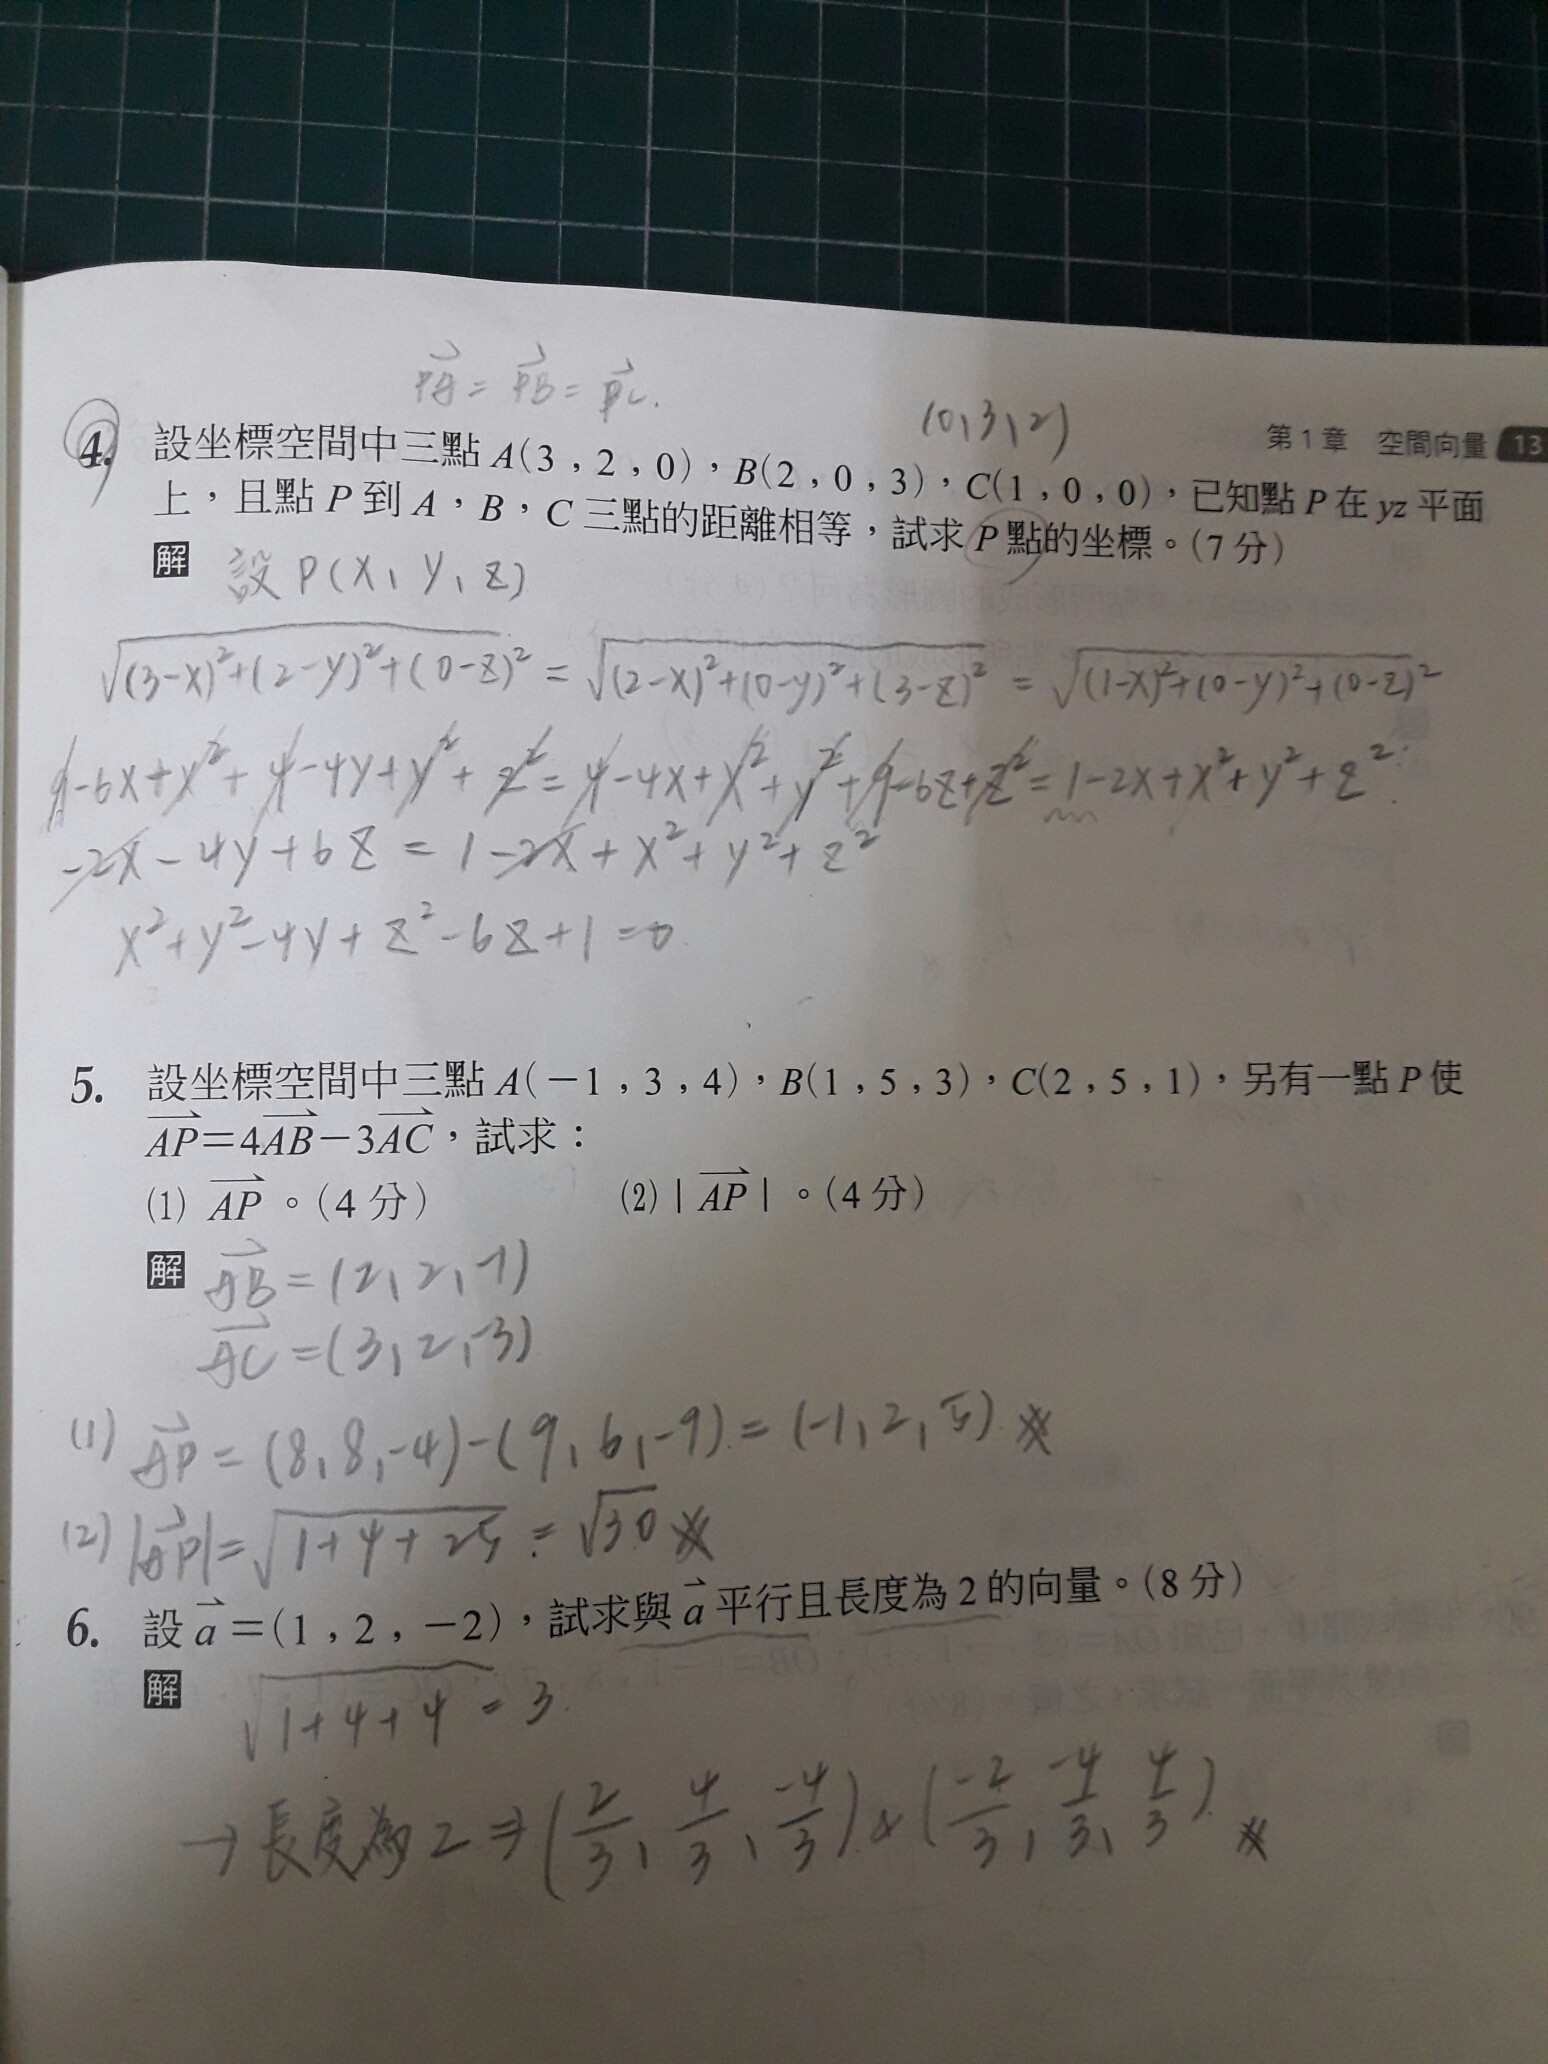 PA = PB = PC.
(0,3,2)
第1章 空間向量 13
4. 設坐標空間中三點 A(3,2,0),B(2,0,3),C(1,0,0),已知點 P 在 yz 平面
上,且點 P 到 A,B,C 三點的距離相等,試求 P 點的坐標。(7 分)
解 設 P(x, y, z)
√(3-x)²+(2-y)²+(0-z)² = √(2-x)²+(0-y)²+(3-z)² = √(1-x)²+(0-y)²+(0-z)²
9-6x+x²+4-4y+y²+z²=4-4x+x²+y²+9-6z+z²=1-2x+x²+y²+z²
-2x-4y+6z = 1-2x+x²+y²+z²
x²+y²-4y+z²-6z+1=0
5. 設坐標空間中三點 A(-1,3,4),B(1,5,3),C(2,5,1),另有一點 P 使
AP=4AB-3AC,試求:
(1) AP。(4 分) (2) | AP |。(4 分)
解 AB = (2, 2, -1)
AC = (3, 2, -3)
(1) AP = (8, 8, -4)-(9, 6, -9) = (-1, 2, 5)
(2) |AP| = √1+4+25 = √30
6. 設 a=(1,2,-2),試求與 a 平行且長度為 2 的向量。(8 分)
解 √1+4+4 = 3
→ 長度為 2 ⇒ (2/3, 4/3, -4/3) & (-2/3, -4/3, 4/3)